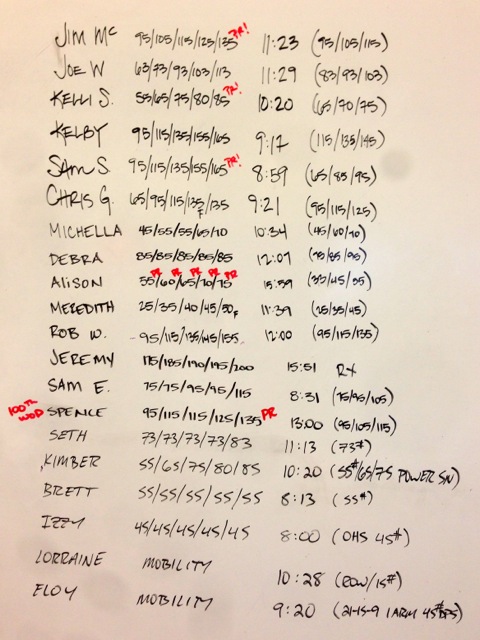 JIM Mc 95/105/115/125/135 PR! 11:23 (95/105/115)
JOE W 63/73/93/103/113 11:29 (83/93/103)
KELLI S. 55/65/75/80/85 PR! 10:20 (65/70/75)
KELBY 95/115/135/155/165 9:17 (115/135/145)
SAM S. 95/115/135/155/165 PR! 8:59 (65/85/95)
CHRIS G. 65/95/115/135F/135 9:21 (95/115/125)
MICHELLA 45/55/55/65/70 10:34 (45/60/70)
DEBRA 85/85/85/85/85 12:07
ALISON 55/60/65/70/75 PR PR PR PR PR 15:39
MEREDITH 25/35/40/45/50F 11:39 (25/35/45)
ROB W. 95/115/135/145/155 12:00 (95/115/135)
JEREMY 175/185/190/195/200 15:51 RX
SAM E. 75/75/95/95/115 8:31 (75/95/105)
100TH WOD SPENCE 95/115/115/125/135 PR 13:00 (95/105/115)
SETH 73/73/73/73/83 11:13 (73#)
KIMBER 55/65/75/80/85 10:20 (55#/65/75 POWER SN)
BRETT 55/55/55/55/55 8:13 (55#)
IZZY 45/45/45/45/45 8:00 (OHS 45#)
LORRAINE MOBILITY 10:28 (ROW/15#)
ELOY MOBILITY 9:20 (21-15-9 1 ARM 45#